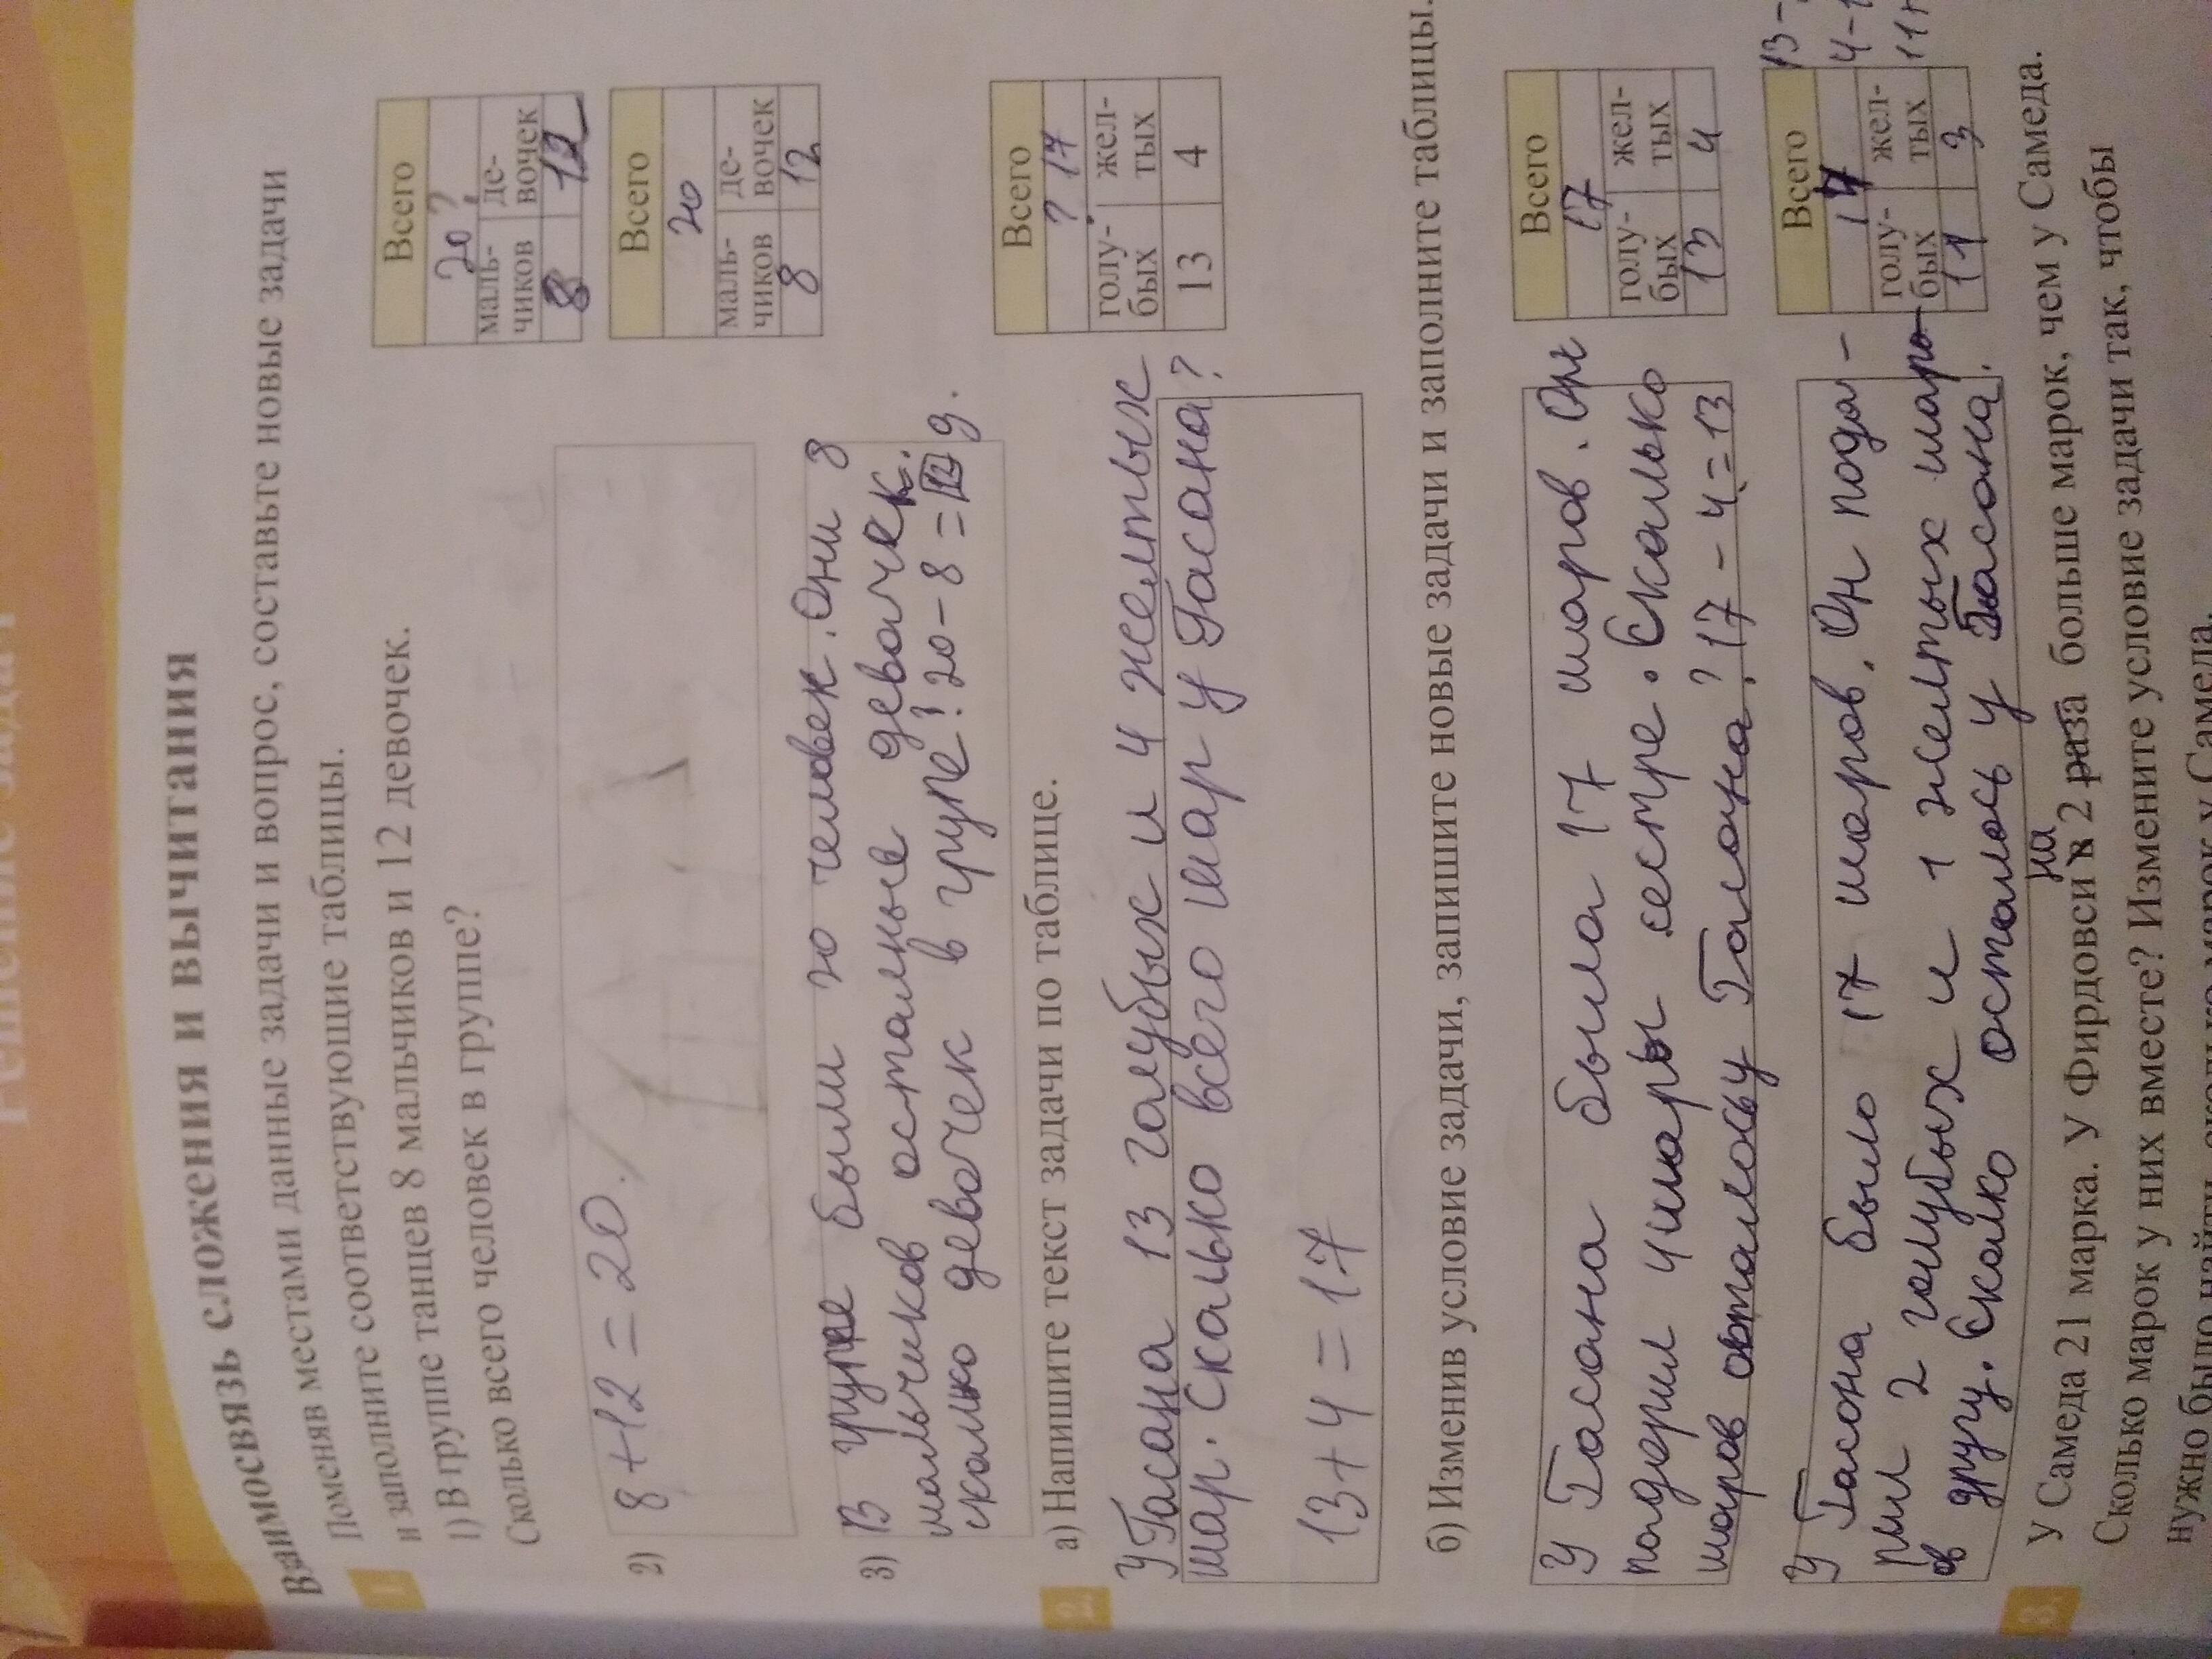 Взаимосвязь сложения и вычитания
1.
Поменяв местами данные задачи и вопрос, составьте новые задачи
и заполните соответствующие таблицы.
1) В группе танцев 8 мальчиков и 12 девочек.
Сколько всего человек в группе?
Всего
20 ?
маль-
чиков
де-
вочек
8
12
2) 8+12=20.
Всего
20
маль-
чиков
де-
вочек
8
12
3) В групе были 20 человек. Они 8
мальчиков осталные девочек.
сколко девочек в групе? 20-8=12 д.
2.
а) Напишите текст задачи по таблице.
У Гасана 13 голубых и 4 желтых
шар. Сколько всего шар у Гасана?
13+4=17
Всего
? 17
голу-
бых
жел-
тых
13
4
б) Изменив условие задачи, запишите новые задачи и заполните таблицы.
У Гасана была 17 шаров. Он
подерил 4 шары сестре. Сколько
шаров осталосьу Гасана? 17-4=13
Всего
17
голу-
бых
жел-
тых
13
4
У Гасона было 17 шаров. Он пода-
рил 2 голубых и 1 желтых шаро-
в другу. Сколко осталось у Гасона.
Всего
14
голу-
бых
жел-
тых
11
3
13-
4-1
11+
3.
У Самеда 21 марка. У Фирдовси в на 2 раза больше марок, чем у Самеда.
Сколько марок у них вместе? Измените условие задачи так, чтобы
нужно было найти, сколько марок у Самеда.